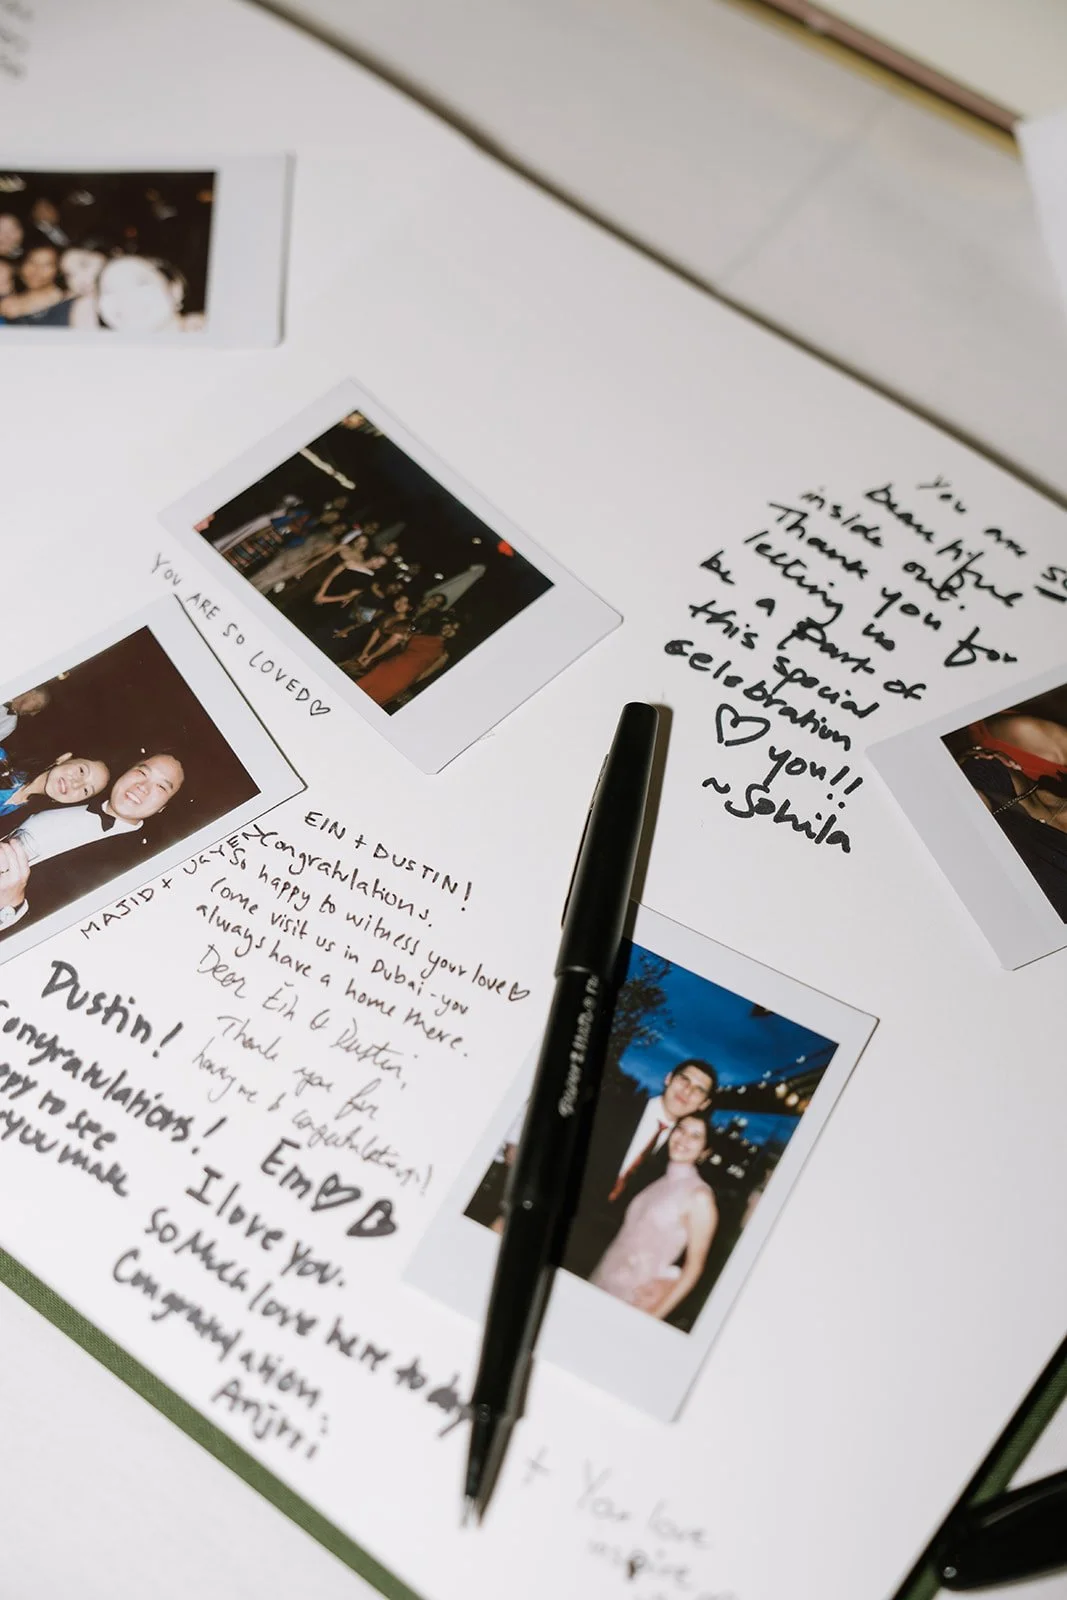 You are so
beautiful
inside out.
Thank you for
letting us
be a part of
this special
celebration
♡ you!!
~Sohila
YOU ARE SO LOVED♡
EIN + DUSTIN!
Congratulations.
So happy to witness your love♡
Come visit us in Dubai - you
always have a home there.
MAJID +
Dear Ein & Dustin,
Thank you for
having me & congratulations!
Dustin!
Congratulations!
to see
you make
Em♡
I love you.
So Much love here today
Congratulation,
Anjmi
+ You love
inspire